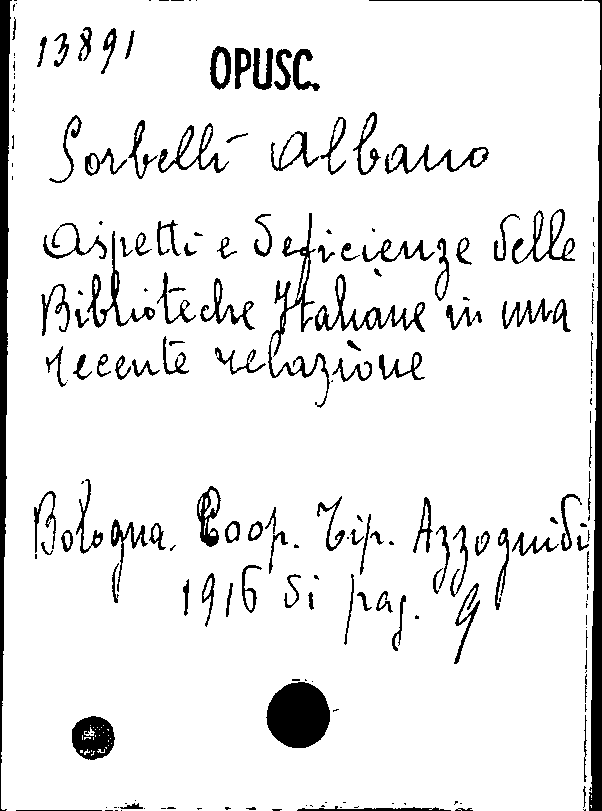 13891
OPUSC.
Sorbelli Albano
Aspetti e deficienze delle
Biblioteche Italiane in una
recente relazione
Bologna. Coop. Tip. Azzoguidi
1916 di pag. 9